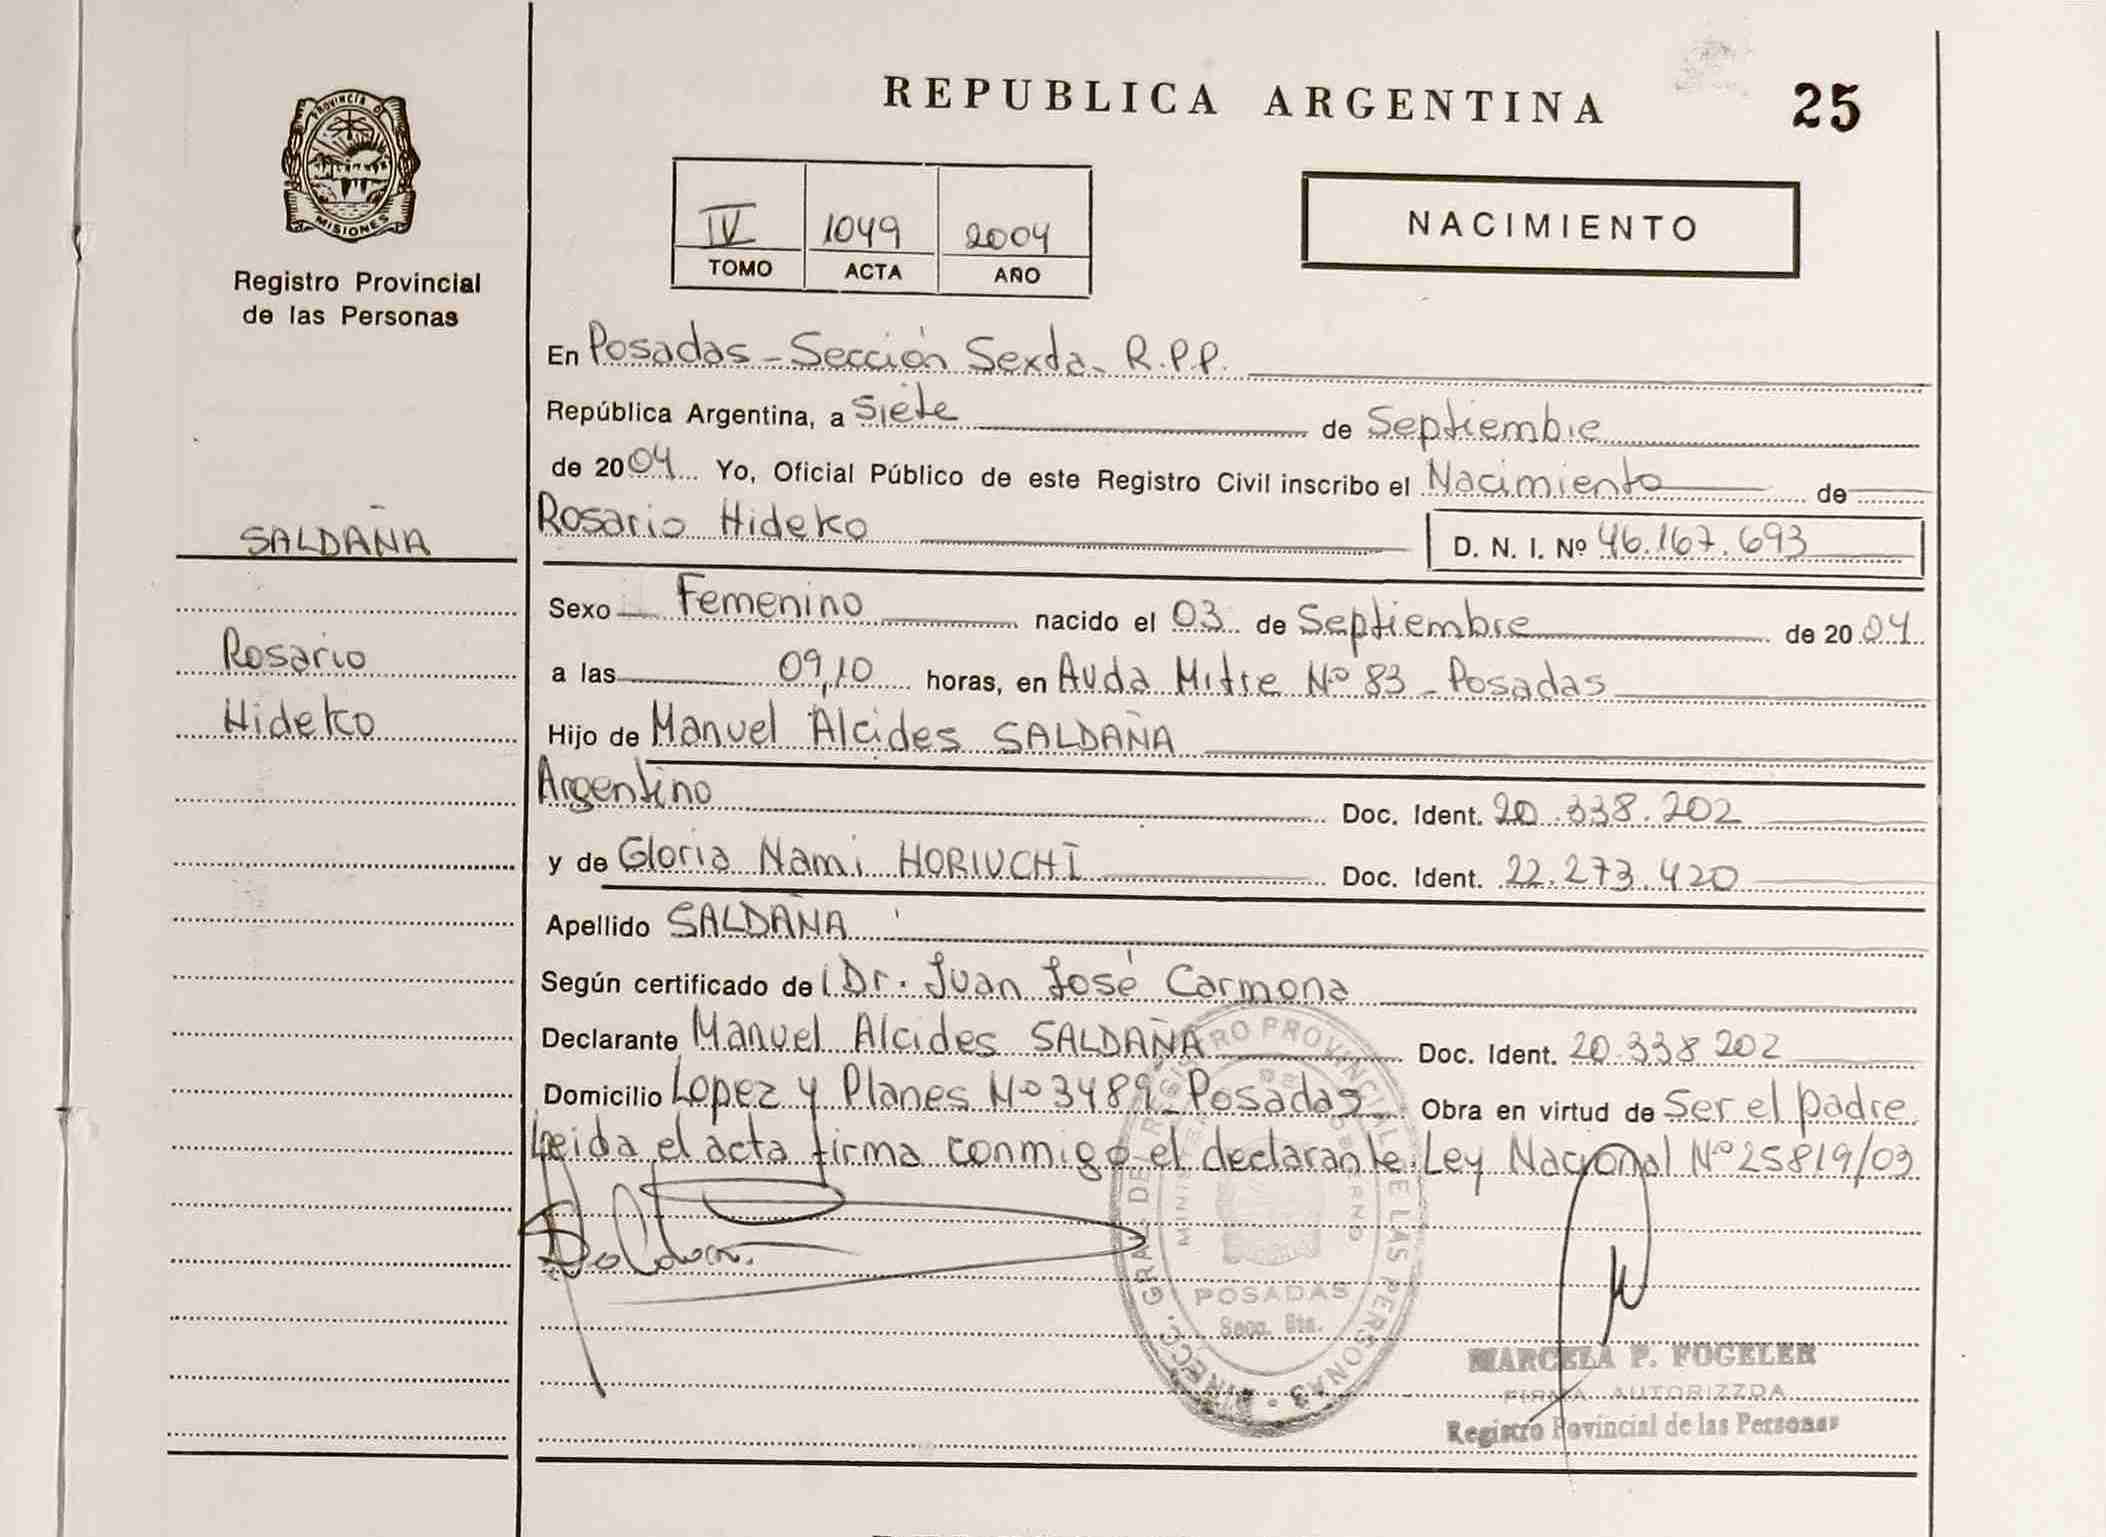 PROVINCIA DE
MISIONES
Registro Provincial
de las Personas
SALDAÑA
Rosario
Hideko
REPUBLICA ARGENTINA
25
IV 1049 2004
TOMO ACTA AÑO
NACIMIENTO
En Posadas - Sección Sexta - R.P.P.
República Argentina, a Siete de Septiembre
de 2004 Yo, Oficial Público de este Registro Civil inscribo el Nacimiento de
Rosario Hideko D. N. I. Nº 46.167.693
Sexo Femenino nacido el 03 de Septiembre de 2004
a las 09,10 horas, en Avda Mitre Nº 83 - Posadas
Hijo de Manuel Alcides SALDAÑA
Argentino Doc. Ident. 20.338.202
y de Gloria Nami HORIUCHI Doc. Ident. 22.273.420
Apellido SALDAÑA
Según certificado de Dr. Juan José Carmona
Declarante Manuel Alcides SALDAÑA Doc. Ident. 20.338.202
Domicilio Lopez y Planes Nº 3489 - Posadas Obra en virtud de Ser el padre.
Leida el acta firma conmigo el declarante. Ley Nacional Nº 25819/03
DIRECC. GRAL. DE REGISTRO PROVINCIAL DE LAS PERSONAS
POSADAS
Secc. 6ta.
MARCELA P. FOGELER
FIRMA AUTORIZZDA
Registro Provincial de las Personas